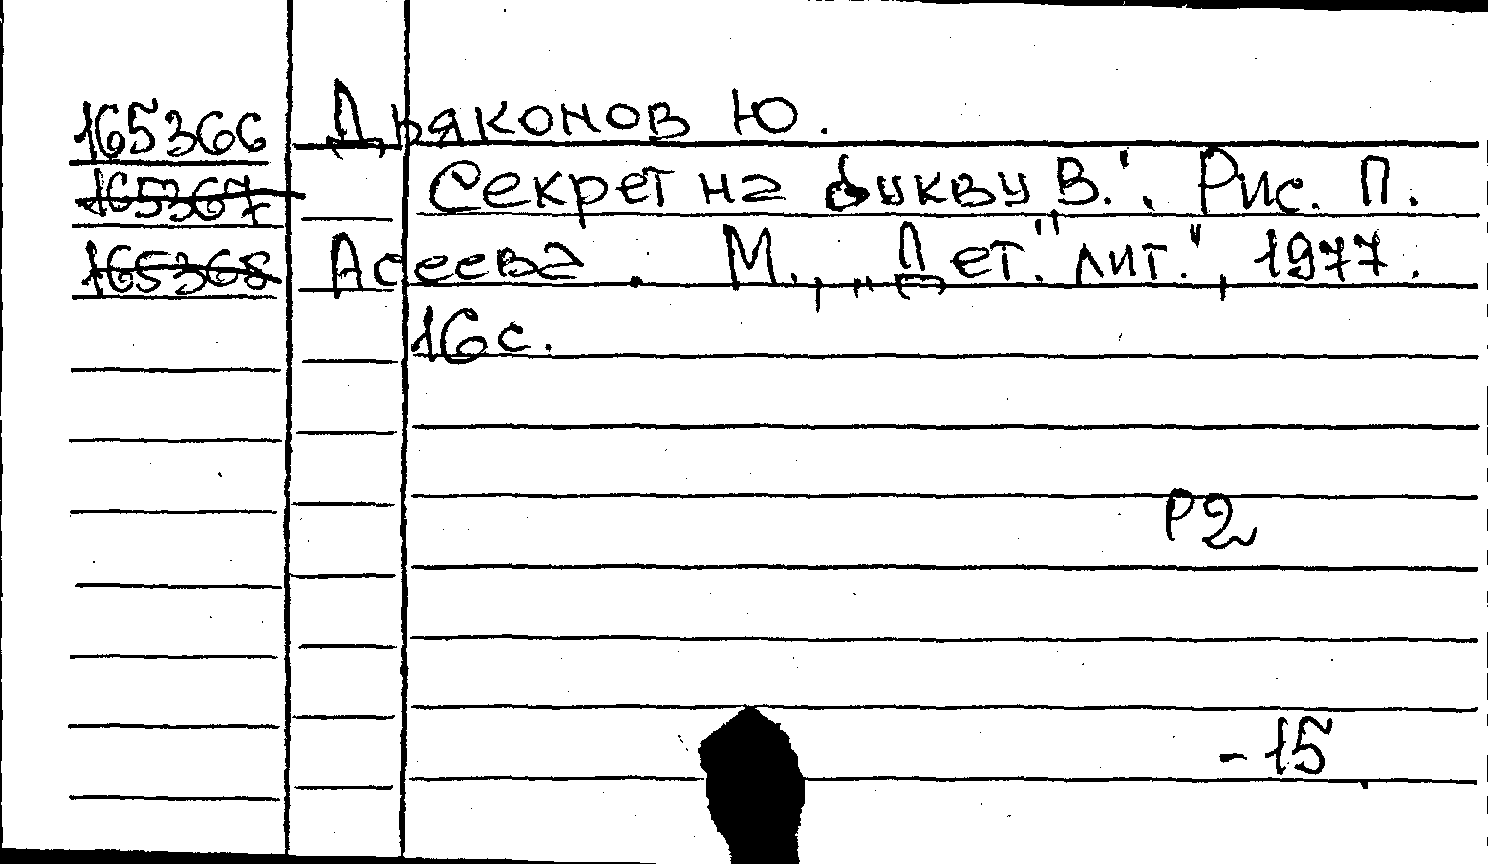 165366 Дьяконов Ю.
165367 Секрет на букву В.". Рис. П.
165368 Асеева. М., „Дет." лит.", 1977.
16 с.
Р2
-15